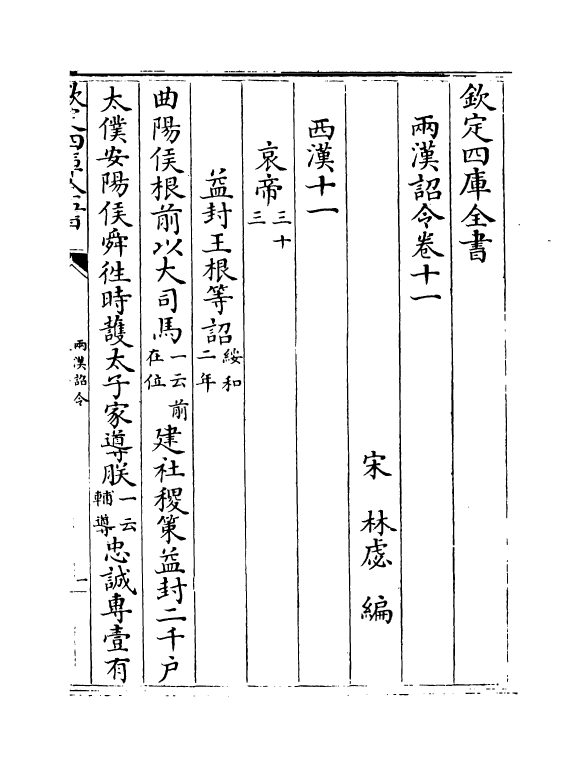 欽定四庫全書
兩漢詔令卷十一
宋 林虙 編
西漢十一
哀帝三十三
益封王根等詔綏和二年
曲陽侯根前以大司馬一云前在位建社稷策益封二千户
太僕安陽侯舜徃時護太子家導朕一云輔導忠誠專壹有
兩漢詔令
一